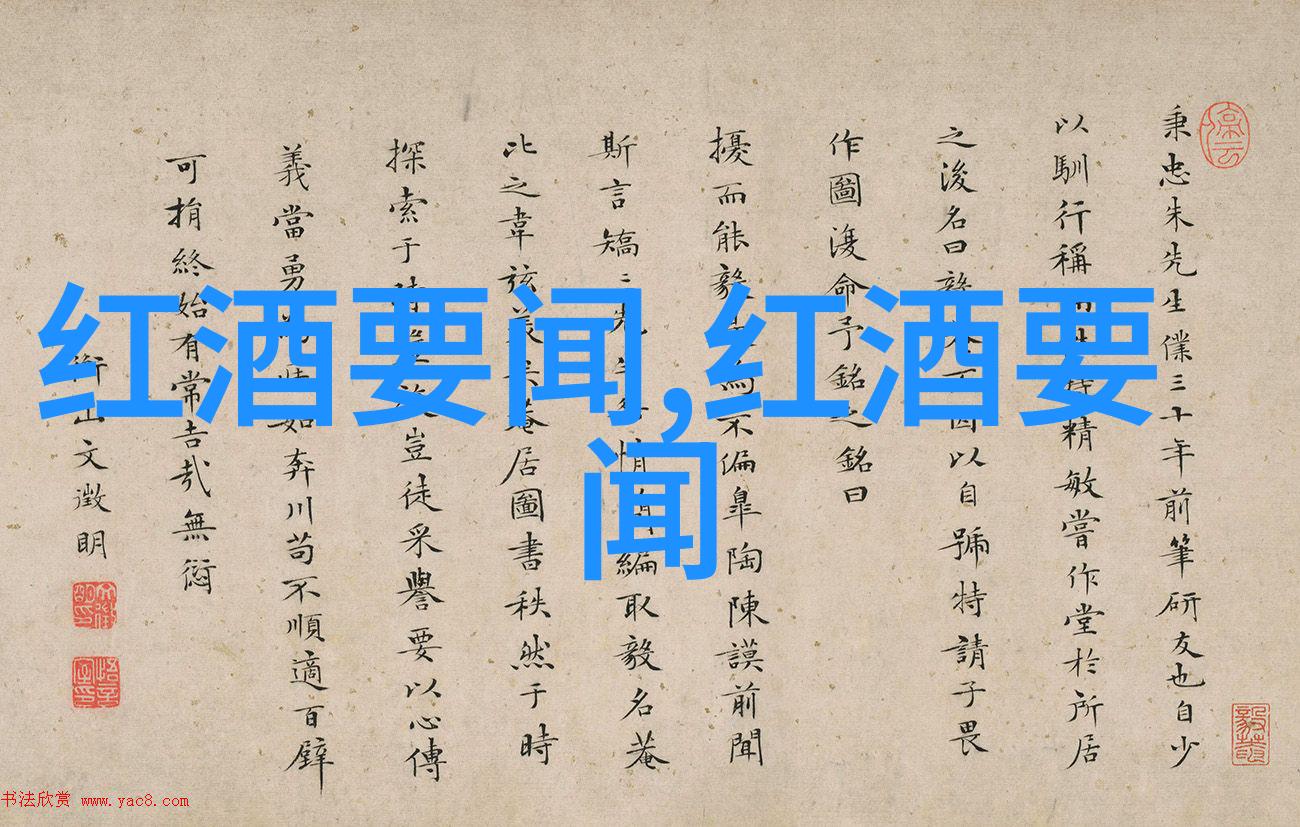 红酒要闻,红酒要
闻
秉忠朱先生僕三十年前筆研友也自少
以馴行稱精敏嘗作堂於所居
之後名曰以自號特請子畏
作圖復命予銘之銘曰
擾而能毅不偏皐陶陳謨前聞
斯言矯編取毅名菴
比之韋弦居圖書秩然于時
探索于豈徒采譽要以心傳
義當勇如奔川苟不順適百
可捐終始有常吉哉無愆
衡山文徵明
书法欣赏 www.yac8.com